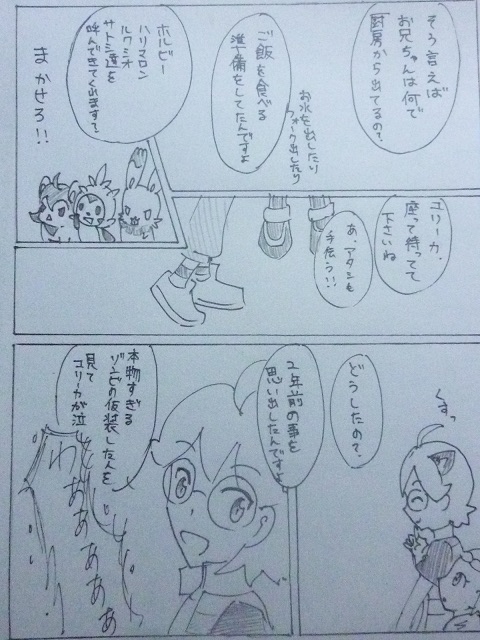 そう言えば
お兄ちゃんは何で
厨房から出てるの?
お水を出したり
フォーク出したり
ご飯を食べる
準備をしてたんですよ
ホルビー
ハリマロン
ルクシオ
サトシ達を
呼んできてくれます?
まかせろ!!
ユリーカ、
座って待ってて
下さいね
あ、アタシも
手伝う!!
くすっ
どうしたの?
2年前の事を
思い出したんですよ
本物すぎる
ゾンビの仮装した人を
見て
ユリーカが泣
わぁぁぁぁぁ